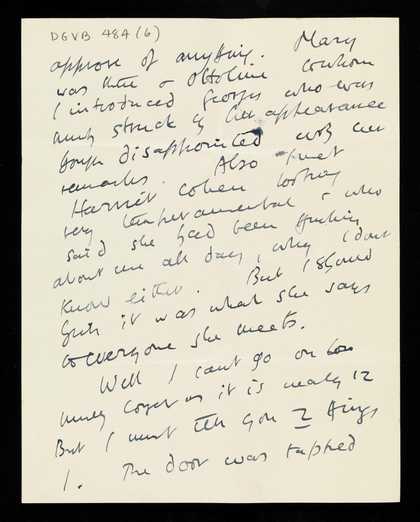 DGVB 484 (6)
approve of anything. Mary
was there & Ottoline
I introduced Georges who was
much struck by her appearance
though disappointed with her
remarks. Also I met
Harriet Cohen looking
very temperamental & who
said she had been thinking
about me all day, why I don't
know either. But I should
guess it was what she says
to everyone she meets.
Well I cant go on
much longer as it is nearly 12
But I must tell you 2 things
1. The door was tapped